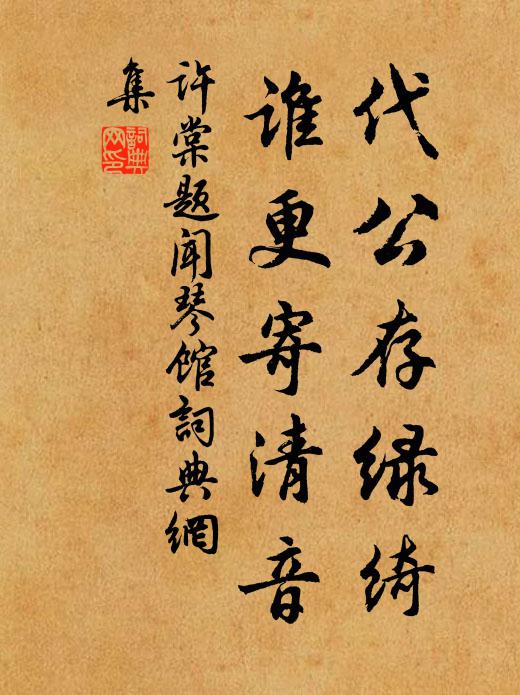 代公存绿绮
谁更寄清音
许棠题闻琴馆詞典網
集
詞典
网印